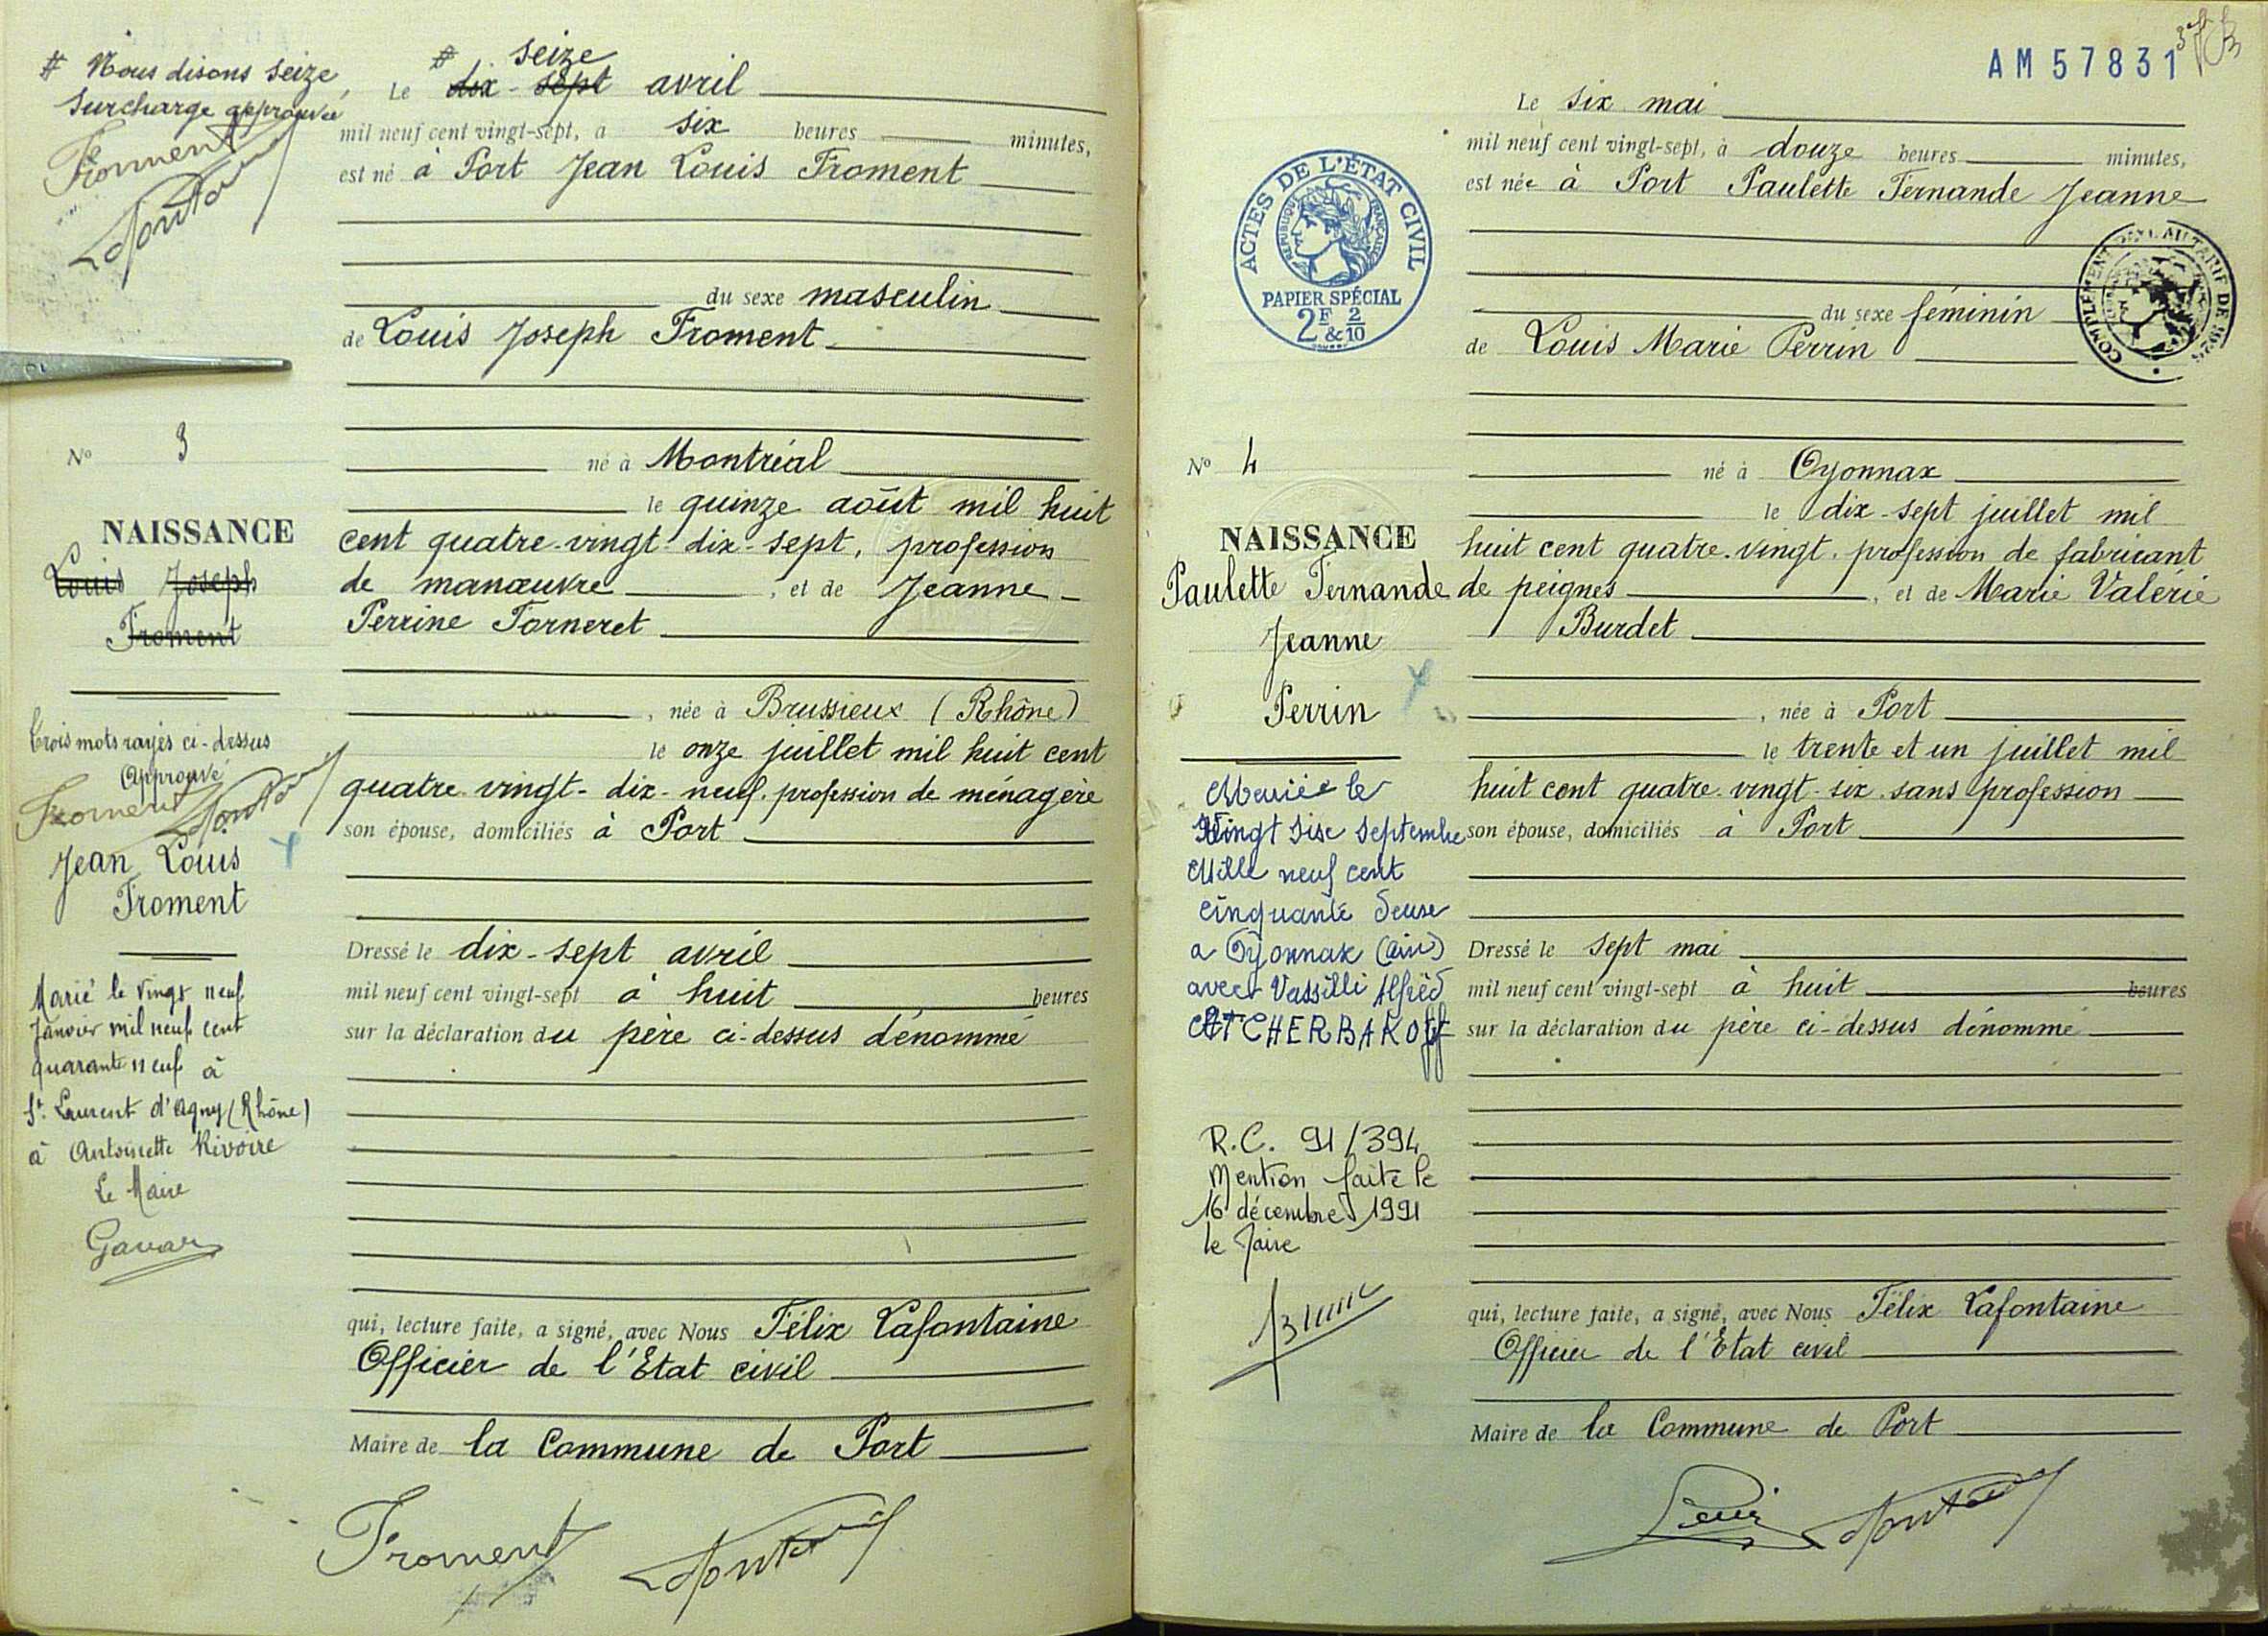 # Nous disons seize,
surcharge approuvée
Froment
Lafontaine
# seize
Le dix-sept avril
mil neuf cent vingt-sept, à six heures minutes,
est né à Port Jean Louis Froment
du sexe masculin
de Louis Joseph Froment
né à Montréal
le quinze août mil huit
cent quatre-vingt-dix-sept, profession
de manœuvre, et de Jeanne
Perrine Forneret
, née à Brussieux (Rhône)
le onze juillet mil huit cent
quatre-vingt-dix-neuf. profession de ménagère
son épouse, domiciliés à Port
Dressé le dix-sept avril
mil neuf cent vingt-sept à huit heures
sur la déclaration du père ci-dessus dénommé
qui, lecture faite, a signé, avec Nous Félix Lafontaine
Officier de l'Etat civil
Maire de la Commune de Port
Froment Lafontaine
N° 3
NAISSANCE
Louis Joseph
Froment
Trois mots rayés ci-dessus
Approuvé
Froment Lafontaine
Jean Louis
Froment
Marié le vingt neuf
Janvier mil neuf cent
quarante neuf à
St. Laurent d'Agny (Rhône)
à Antoinette Rivoire
Le Maire
AM 57831
Le six mai
mil neuf cent vingt-sept, à douze heures minutes,
est née à Port Paulette Fernande Jeanne
du sexe féminin
de Louis Marie Perrin
né à Oyonnax
le dix-sept juillet mil
huit cent quatre-vingt. profession de fabricant
de peignes, et de Marie Valérie
Burdet
, née à Port
le trente et un juillet mil
huit cent quatre-vingt-six. sans profession
son épouse, domiciliés à Port
Dressé le sept mai
mil neuf cent vingt-sept à huit heures
sur la déclaration du père ci-dessus dénommé
qui, lecture faite, a signé, avec Nous Félix Lafontaine
Officier de l'Etat civil
Maire de la Commune de Port
Perrin Lafontaine
ACTES DE L'ÉTAT CIVIL
RÉPUBLIQUE FRANÇAISE
PAPIER SPÉCIAL
2F & 2/10
COMPLÉMENT AU TARIF DE 1925
N° 4
NAISSANCE
Paulette Fernande
Jeanne
Perrin
Mariée le
Vingt six septembre
Mille neuf cent
cinquante deux
a Oyonnax (Ain)
avec Vassilli Alfred
R.C. 91/394
Mention faite le
16 décembre 1991
le Maire